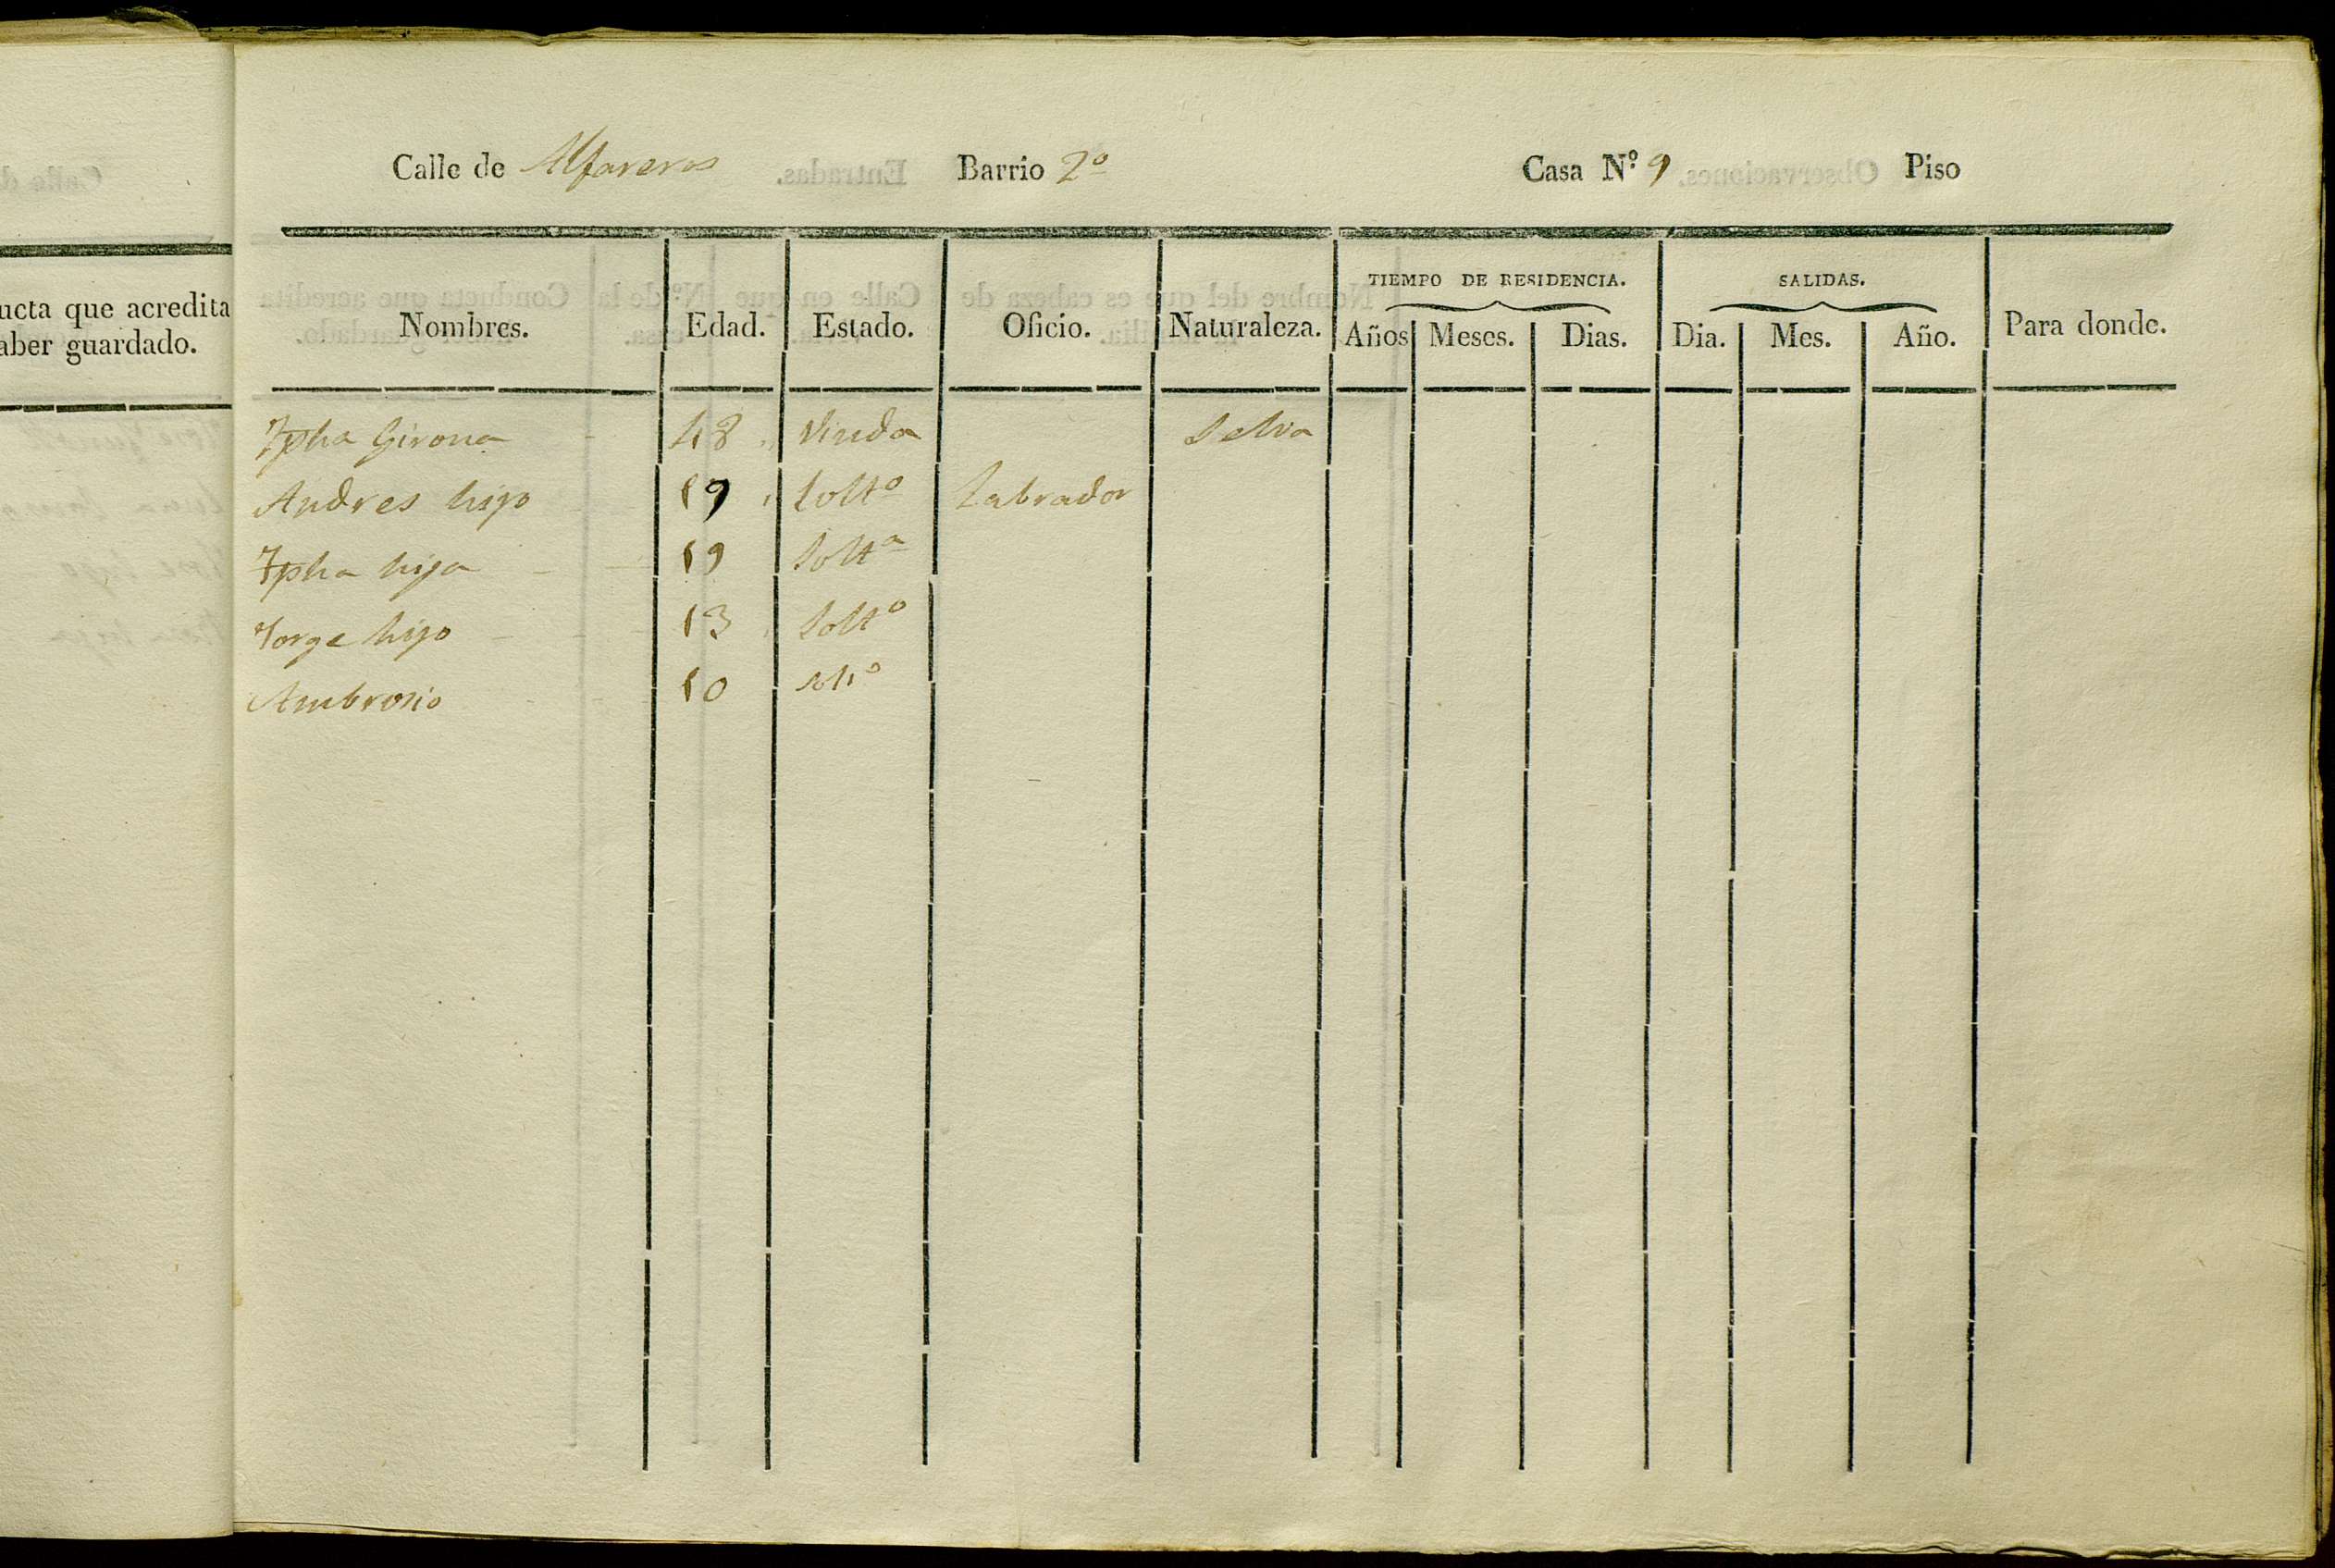 Calle de Alfareros Barrio 2º Casa Nº 9 Piso
ucta que acredita
aber guardado.
Nombres. Edad. Estado. Oficio. Naturaleza. TIEMPO DE RESIDENCIA. Años Meses. Dias. SALIDAS. Dia. Mes. Año. Para donde.
Jpha Girona 48 Viuda Selva
Andres hijo 19 Soltº Labrador
Jpha hija 19 Soltª
Jorge hijo 13 Soltº
Ambrosio 10 Soltº